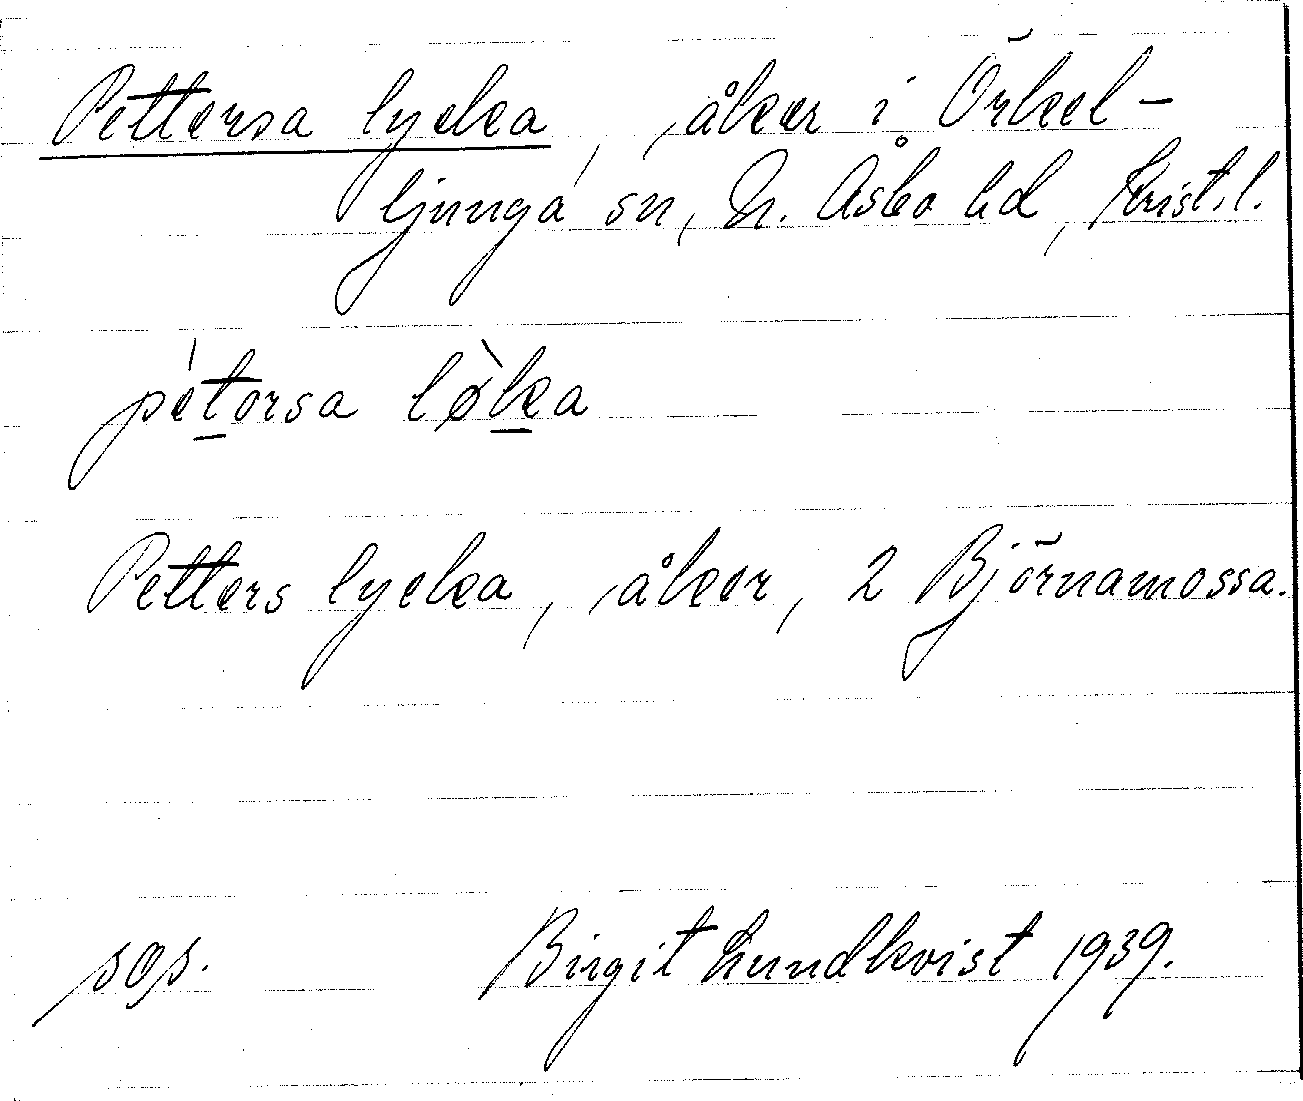 Pettersa lycka, åker i Örkel-
ljunga sn, N. Åsbo hd, Krist. l.
pétorsa lø̀ka
Petters lycka, åker, 2 Björnamossa.
sos. Birgit Lundkvist 1939.